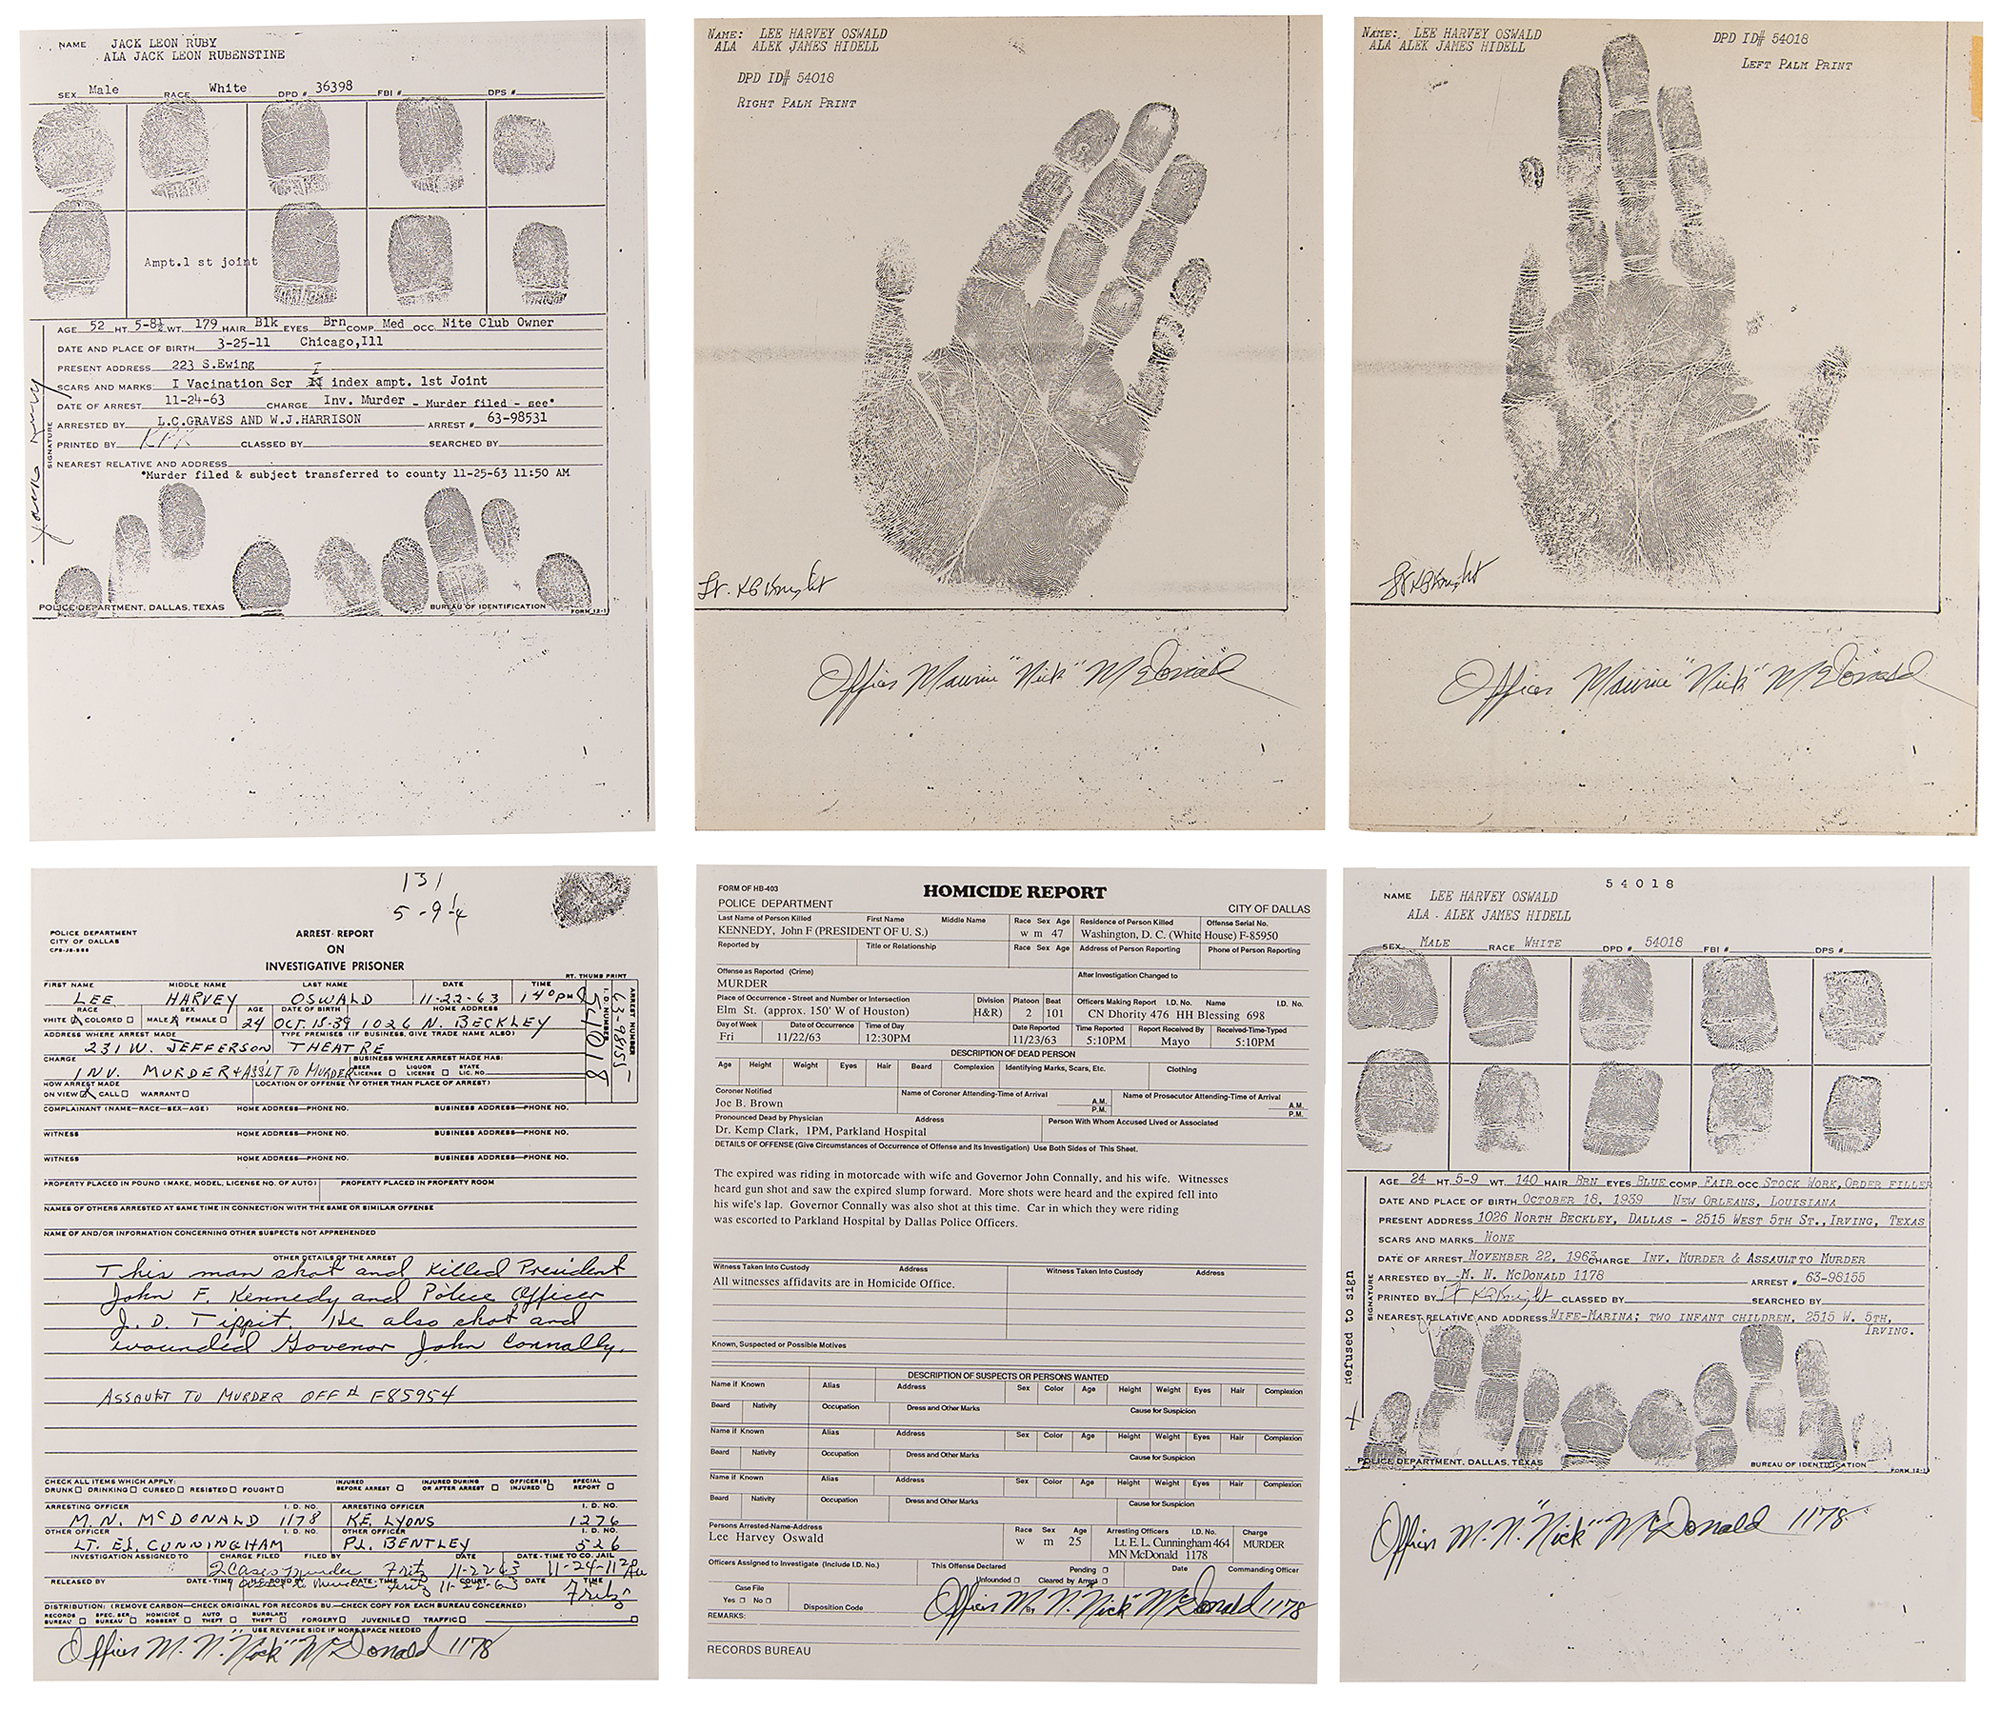 NAME JACK LEON RUBY
ALA JACK LEON RUBENSTINE
SEX Male RACE White DPD # 36398 FBI # DPS #
Ampt.1 st joint
AGE 52 HT 5-8½ WT. 179 HAIR Blk EYES Brn COMP Med OCC Nite Club Owner
DATE AND PLACE OF BIRTH 3-25-11 Chicago,Ill
PRESENT ADDRESS 223 S.Ewing
SCARS AND MARKS: I Vacination Scr I index ampt. 1st Joint
DATE OF ARREST 11-24-63 CHARGE Inv. Murder - Murder filed - see*
ARRESTED BY L.C.GRAVES AND W.J.HARRISON ARREST # 63-98531
PRINTED BY CLASSED BY SEARCHED BY
NEAREST RELATIVE AND ADDRESS
*Murder filed & subject transferred to county 11-25-63 11:50 AM
SIGNATURE
X Jack Ruby
POLICE DEPARTMENT, DALLAS, TEXAS BUREAU OF IDENTIFICATION FORM 12-1
NAME: LEE HARVEY OSWALD
ALA ALEK JAMES HIDELL
DPD ID# 54018
RIGHT PALM PRINT
Lt. KP Knight
Officer Maurice "Nick" McDonald
NAME: LEE HARVEY OSWALD
ALA ALEK JAMES HIDELL
DPD ID# 54018
LEFT PALM PRINT
Lt KP Knight
Officer Maurice "Nick" McDonald
131
5-9¼
POLICE DEPARTMENT
CITY OF DALLAS
ARREST REPORT
ON
INVESTIGATIVE PRISONER
RT. THUMB PRINT
FIRST NAME MIDDLE NAME LAST NAME DATE TIME
LEE HARVEY OSWALD 11-22-63 1 40 PM
RACE SEX AGE DATE OF BIRTH HOME ADDRESS
WHITE X COLORED MALE X FEMALE 24 OCT. 18-39 1026 N. BECKLEY
ADDRESS WHERE ARREST MADE TYPE PREMISES (IF BUSINESS, GIVE TRADE NAME ALSO)
231 W. JEFFERSON THEATRE
CHARGE BUSINESS WHERE ARREST MADE HAS:
INV. MURDER & ASS'LT TO MURDER BEER LICENSE LIQUOR LICENSE STATE LIC. NO.
HOW ARREST MADE LOCATION OF OFFENSE (IF OTHER THAN PLACE OF ARREST)
ON VIEW X CALL WARRANT
I.D. NUMBER 54018
ARREST NUMBER 63-98155
COMPLAINANT (NAME—RACE—SEX—AGE) HOME ADDRESS—PHONE NO. BUSINESS ADDRESS—PHONE NO.
WITNESS HOME ADDRESS—PHONE NO. BUSINESS ADDRESS—PHONE NO.
WITNESS HOME ADDRESS—PHONE NO. BUSINESS ADDRESS—PHONE NO.
PROPERTY PLACED IN POUND (MAKE, MODEL, LICENSE NO. OF AUTO) PROPERTY PLACED IN PROPERTY ROOM
NAMES OF OTHERS ARRESTED AT SAME TIME IN CONNECTION WITH THE SAME OR SIMILAR OFFENSE
NAME OF AND/OR INFORMATION CONCERNING OTHER SUSPECTS NOT APPREHENDED
OTHER DETAILS OF THE ARREST
This man shot and killed President
John F. Kennedy and Police Officer
J. D. Tippit. He also shot and
wounded Govenor John Connally.
ASSAULT TO MURDER OFF # F85954
CHECK ALL ITEMS WHICH APPLY:
DRUNK DRINKING CURSED RESISTED FOUGHT INJURED BEFORE ARREST INJURED DURING OR AFTER ARREST OFFICER(S) INJURED SPECIAL REPORT
ARRESTING OFFICER I. D. NO. ARRESTING OFFICER I. D. NO.
M.N. McDONALD 1178 K.E. LYONS 1276
OTHER OFFICER I. D. NO. OTHER OFFICER I. D. NO.
LT. E.L. CUNNINGHAM P.L. BENTLEY 526
INVESTIGATION ASSIGNED TO CHARGE FILED FILED BY DATE DATE-TIME TO CO. JAIL
2 Cases Murder Fritz 11-22-63 11-24-11
RELEASED BY DATE-TIME DATE TIME
Fritz 11-22-63 Fritz
DISTRIBUTION: (REMOVE CARBON—CHECK ORIGINAL FOR RECORDS BU.—CHECK COPY FOR EACH BUREAU CONCERNED)
RECORDS BUREAU SPEC. SER. BUREAU HOMICIDE ROBBERY AUTO THEFT BURGLARY THEFT FORGERY JUVENILE TRAFFIC
USE REVERSE SIDE IF MORE SPACE NEEDED
Officer M. N. "Nick" McDonald 1178
FORM OF HB-403
HOMICIDE REPORT
POLICE DEPARTMENT CITY OF DALLAS
Last Name of Person Killed First Name Middle Name Race Sex Age Residence of Person Killed Offense Serial No.
KENNEDY, John F (PRESIDENT OF U. S.) w m 47 Washington, D. C. (White House) F-85950
Reported by Title or Relationship Race Sex Age Address of Person Reporting Phone of Person Reporting
Offense as Reported (Crime) After Investigation Changed to
MURDER
Place of Occurrence - Street and Number or Intersection Division Platoon Beat Officers Making Report I.D. No. Name I.D. No.
Elm St. (approx. 150' W of Houston) H&R) 2 101 CN Dhority 476 HH Blessing 698
Day of Week Date of Occurrence Time of Day Date Reported Time Reported Report Received By Received-Time-Typed
Fri 11/22/63 12:30PM 11/23/63 5:10PM Mayo 5:10PM
DESCRIPTION OF DEAD PERSON
Age Height Weight Eyes Hair Beard Complexion Identifying Marks, Scars, Etc. Clothing
Coroner Notified Name of Coroner Attending-Time of Arrival A.M. P.M. Name of Prosecutor Attending-Time of Arrival A.M. P.M.
Joe B. Brown
Pronounced Dead by Physician Address Person With Whom Accused Lived or Associated
Dr. Kemp Clark, 1PM, Parkland Hospital
DETAILS OF OFFENSE (Give Circumstances of Occurrence of Offense and Its Investigation) Use Both Sides of This Sheet.
The expired was riding in motorcade with wife and Governor John Connally, and his wife. Witnesses
heard gun shot and saw the expired slump forward. More shots were heard and the expired fell into
his wife's lap. Governor Connally was also shot at this time. Car in which they were riding
was escorted to Parkland Hospital by Dallas Police Officers.
Witness Taken Into Custody Address Witness Taken Into Custody Address
All witnesses affidavits are in Homicide Office.
Known, Suspected or Possible Motives
DESCRIPTION OF SUSPECTS OR PERSONS WANTED
Name if Known Alias Address Sex Color Age Height Weight Eyes Hair Complexion
Beard Nativity Occupation Dress and Other Marks Cause for Suspicion
Name if Known Alias Address Sex Color Age Height Weight Eyes Hair Complexion
Beard Nativity Occupation Dress and Other Marks Cause for Suspicion
Name if Known Alias Address Sex Color Age Height Weight Eyes Hair Complexion
Beard Nativity Occupation Dress and Other Marks Cause for Suspicion
Persons Arrested-Name-Address Race Sex Age Arresting Officers I.D. No. Charge
Lee Harvey Oswald w m 25 Lt. E. L. Cunningham 464 MURDER
MN McDonald 1178
Officers Assigned to Investigate (Include I.D. No.) This Offense Declared Pending Date Commanding Officer
Unfounded Cleared by Arrest
Case File
Yes No Disposition Code
Officer M. N. "Nick" McDonald 1178
REMARKS:
RECORDS BUREAU
54018
NAME LEE HARVEY OSWALD
ALA . ALEK JAMES HIDELL
SEX MALE RACE WHITE DPD # 54018 FBI # DPS #
AGE 24 HT. 5-9 WT. 140 HAIR BRN EYES BLUE COMP. FAIR OCC. STOCK WORK, ORDER FILLER
DATE AND PLACE OF BIRTH OCTOBER 18, 1939 NEW ORLEANS, LOUISIANA
PRESENT ADDRESS 1026 NORTH BECKLEY, DALLAS - 2515 WEST 5TH ST., IRVING, TEXAS
SCARS AND MARKS NONE
DATE OF ARREST NOVEMBER 22, 1963 CHARGE INV. MURDER & ASSAULT TO MURDER
ARRESTED BY M. N. MCDONALD 1178 ARREST # 63-98155
PRINTED BY Lt KP Knight CLASSED BY SEARCHED BY
NEAREST RELATIVE AND ADDRESS WIFE-MARINA; TWO INFANT CHILDREN, 2515 W. 5TH,
IRVING.
SIGNATURE
X Refused to sign
POLICE DEPARTMENT, DALLAS, TEXAS BUREAU OF IDENTIFICATION FORM 12-1
Officer M. N. "Nick" McDonald 1178